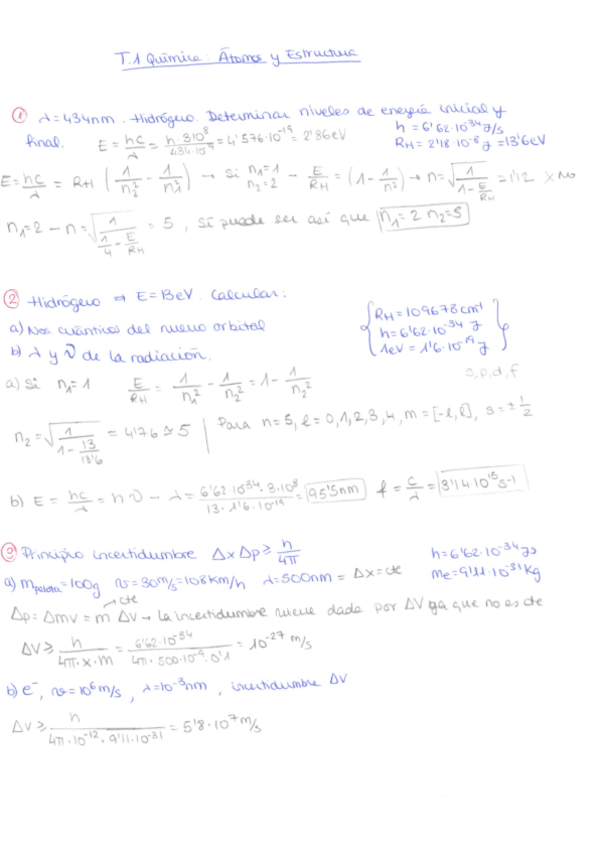 T.1 Química: Átomos y Estructura
① λ=434nm. Hidrógeno. Determinar niveles de energía inicial y
final. E = hc/λ = h·3·10⁸/434·10⁻⁹ = 4'576·10⁻¹⁹ = 2'86eV
h = 6'62·10⁻³⁴ J/s
RH = 2'18·10⁻⁸ J = 13'6eV
E = hc/λ = RH (1/n₂² - 1/n₁²) → Si n₁=1 n₂=2 - E/RH = (1 - 1/n²) → n = √(1/(1 - E/RH)) = 1'12 × No
n₁=2 - n = √(1/(1/4 - E/RH)) = 5, sí puede ser así que n₁=2 n₂=5
② Hidrógeno ⇒ E=13eV. Calcular:
a) Nos cuánticos del nuevo orbital
b) λ y ν de la radiación.
{RH = 109678cm⁻¹
h = 6'62·10⁻³⁴ J
1eV = 1'6·10⁻¹⁹ J}
s, p, d, f
a) Si n₁=1 E/RH = 1/n₁² - 1/n₂² = 1 - 1/n₂²
n₂ = √(1/(1 - 13/13'6)) = 4'76 ≅ 5 | Para n=5, l=0,1,2,3,4, m=[-l,l], s=±1/2
b) E = hc/λ = hν → λ = 6'62·10⁻³⁴·3·10⁸/13·1'6·10⁻¹⁹ = 95'5nm f = c/λ = 3'14·10¹⁵ s⁻¹
③ Principio incertidumbre ΔxΔp ≥ h/4π
h = 6'62·10⁻³⁴ Js
me = 9'11·10⁻³¹ Kg
a) m pelota = 100g v = 30m/s = 108km/h λ=500nm = Δx = cte
Δp = Δmv = m ΔV → la incertidumbre viene dada por ΔV ya que no es cte
cte
ΔV ≥ h/4π·x·m = 6'62·10⁻³⁴/4π·500·10⁻⁹·0'1 = 10⁻²⁷ m/s
b) e⁻, v=10⁶m/s, λ=10⁻³nm, incertidumbre ΔV
ΔV ≥ h/4π·10⁻¹²·9'11·10⁻³¹ = 5'8·10⁷ m/s